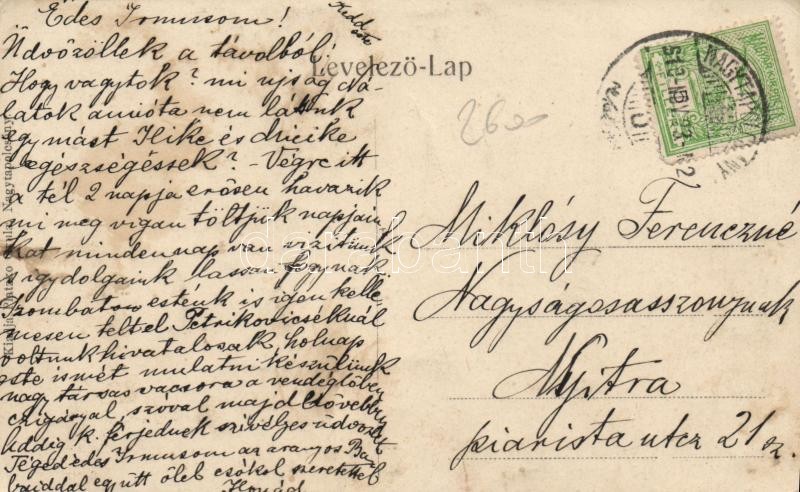 Édes Irmusom!
Kedd este
Üdvözöllek a távolból!
Hogy vagytok? mi ujság ná-
latok amióta nem láttunk
egymást Ilike és
egészségesek? - Végre itt
a tél 2 napja erősen havazik
mi meg vigan töltjük napjain-
kat mindennap van vizitünk
s igy dolgaink lassan fogynak
Szombaton esténk is igen kelle-
mesen telt el Petrikovicséknál
voltunk hivatalosak holnap
este ismét mulatni készülünk
nagy társas vacsora a vendéglőben
czigányal, szóval majd bővebben
Addig k. férjednek szivélyes üdvözlet
Téged édes Irmusom az aranyos Ba-
baiddal együtt ölel csókol szeretettel
Levelező-Lap
2600
Miklósy Ferenczné
Nagyságosasszonynak
Nyitra
piarista utcz 21 sz.
darabanth